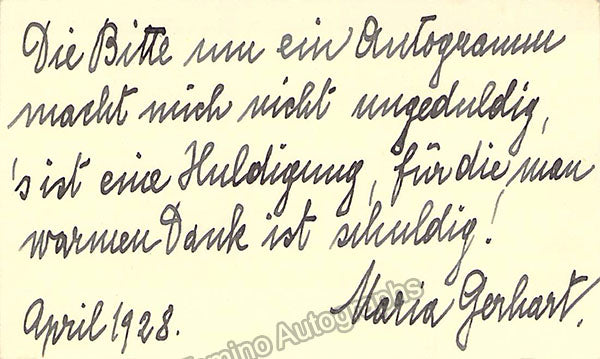 Die Bitte um ein Autogramm
macht mich nicht ungeduldig,
's ist eine Huldigung, für die man
warmen Dank ist schuldig!
Maria Gerhart.
April 1928.
Tamino Autographs